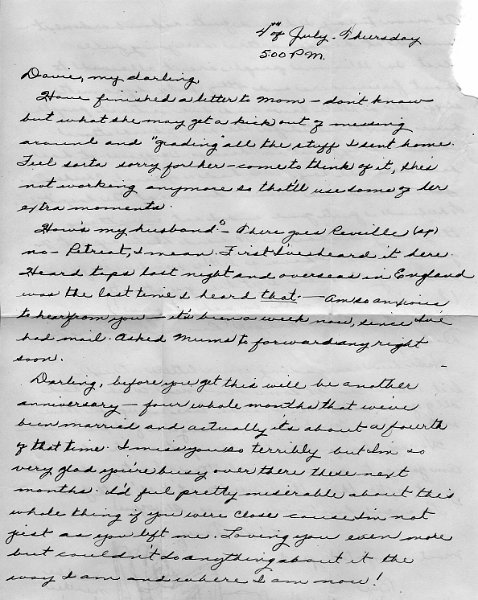 4th of July. Thursday
500 P.M.
Davie, my darling,
Have finished a letter to Mom - don't know
but what she may get a kick out of messing
around and "grading" all the stuff I sent home.
Feel sorta sorry for her - come to think of it, she's
not working anymore so that'll use some of her
extra moments.
How's my husband? - There goes Reveille (sp)
no - Retreat, I mean. First I've heard it here.
Heard taps last night and overseas in England
was the last time I heard that. - Am so anxious
to hear from you - it's been a week now, since I've
had mail. Asked Mums to forward any right
soon.
Darling, before you get this will be another
anniversary - four whole months that we've
been married and actually its about a fourth
of that time. I miss you so terribly but I'm so
very glad you're busy over there these next
months. I'd feel pretty miserable about this
whole thing if you were close - cause I'm not
just as you left me. Loving you even more
but couldn't do anything about it the
way I am and where I am now!